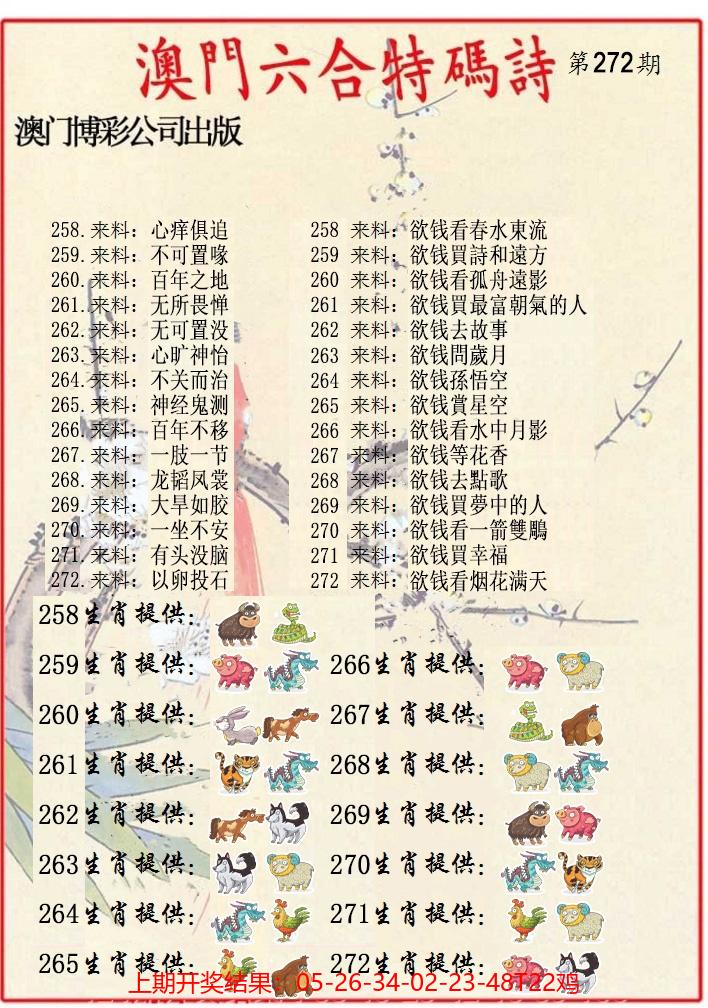 澳門六合特碼詩 第272期
澳门博彩公司出版
258.来料：心痒俱追 258 来料：欲钱看春水東流
259.来料：不可置喙 259 来料：欲钱買詩和遠方
260.来料：百年之地 260 来料：欲钱看孤舟遠影
261.来料：无所畏惮 261 来料：欲钱買最富朝氣的人
262.来料：无可置没 262 来料：欲钱去故事
263.来料：心旷神怡 263 来料：欲钱問歲月
264.来料：不关而治 264 来料：欲钱孫悟空
265.来料：神经鬼测 265 来料：欲钱賞星空
266.来料：百年不移 266 来料：欲钱看水中月影
267.来料：一肢一节 267 来料：欲钱等花香
268.来料：龙韬凤裳 268 来料：欲钱去點歌
269.来料：大旱如胶 269 来料：欲钱買夢中的人
270.来料：一坐不安 270 来料：欲钱看一箭雙鵰
271.来料：有头没脑 271 来料：欲钱買幸福
272.来料：以卵投石 272 来料：欲钱看烟花满天
258生肖提供：
259生肖提供： 266生肖提供：
260生肖提供： 267生肖提供：
261生肖提供： 268生肖提供：
262生肖提供： 269生肖提供：
263生肖提供： 270生肖提供：
264生肖提供： 271生肖提供：
265生肖提供： 272生肖提供：
上期开奖结果：05-26-34-02-23-48T22鸡